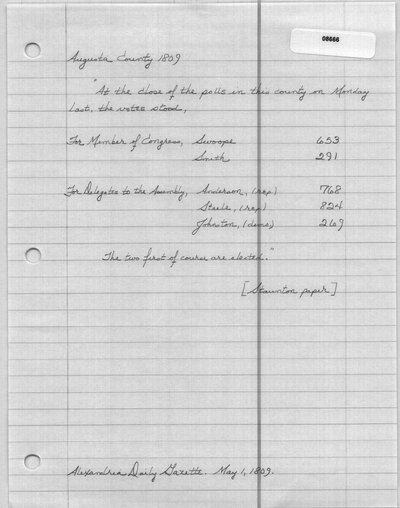 08666
Augusta County 1809
"At the close of the polls in this county on Monday
last, the votes stood,
For Member of Congress, Swoope 653
Smith 291
For Delegates to the Assembly, Anderson, (rep) 768
Steele, (rep) 824
Johnston, (dems) 269
The two first of course are elected."
[Staunton paper]
Alexandria Daily Gazette. May 1, 1809.